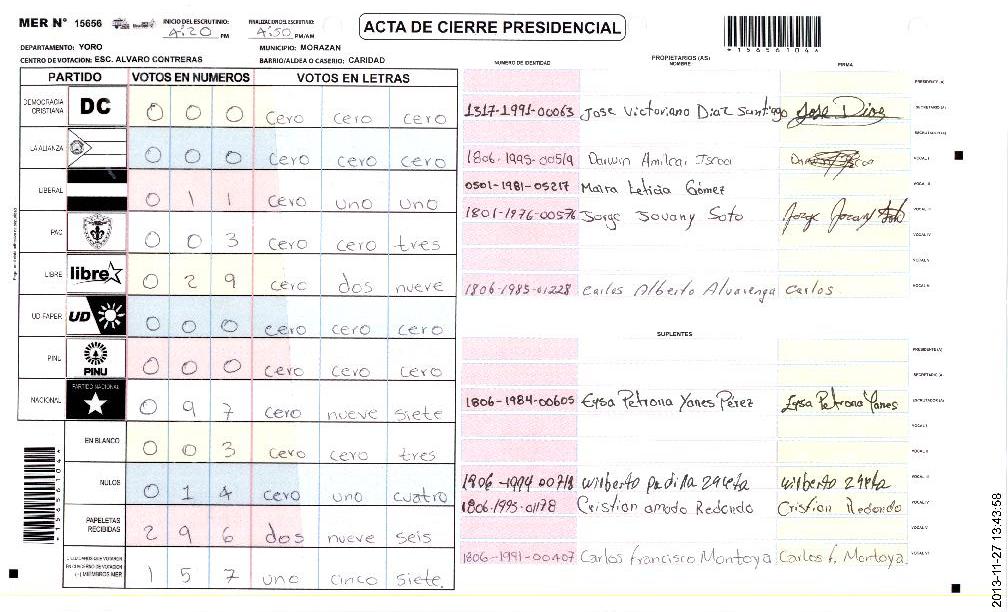 MER N° 15656 INICIO DEL ESCRUTINIO: 4:20 PM FINALIZACION DEL ESCRUTINIO: 4:50 PM/AM
ACTA DE CIERRE PRESIDENCIAL
*156561044*
DEPARTAMENTO: YORO MUNICIPIO: MORAZAN
CENTRO DE VOTACION: ESC. ALVARO CONTRERAS BARRIO/ALDEA O CASERIO: CARIDAD
PARTIDO VOTOS EN NUMEROS VOTOS EN LETRAS
DEMOCRACIA CRISTIANA DC 0 0 0 cero cero cero
LA ALIANZA 0 0 0 cero cero cero
LIBERAL 0 1 1 cero uno uno
PAC 0 0 3 cero cero tres
LIBRE libre 0 2 9 cero dos nueve
UD-FAPER UD 0 0 0 cero cero cero
PINU PINU 0 0 0 cero cero cero
NACIONAL PARTIDO NACIONAL 0 9 7 cero nueve siete
EN BLANCO 0 0 3 cero cero tres
NULOS 0 1 4 cero uno cuatro
PAPELETAS RECIBIDAS 2 9 6 dos nueve seis
CIUDADANOS QUE VOTARON EN CUADERNO DE VOTACION (+) MIEMBROS MER 1 5 7 uno cinco siete
NUMERO DE IDENTIDAD PROPIETARIOS (AS) NOMBRE FIRMA
PRESIDENTE (A)
1317-1991-00063 Jose Victoriano Diaz Santiago Jose Diaz SECRETARIO (A)
ESCRUTADOR (A)
1806-1995-00519 Darwin Amilcar VOCAL I
0501-1981-05217 Maira Leticia Gómez VOCAL II
1801-1976-00576 Jorge Jovany Soto Jorge Jovany Soto VOCAL III
VOCAL IV
VOCAL V
1806-1985-01228 Carlos Alberto Alvarenga Carlos VOCAL VI
SUPLENTES
PRESIDENTE (A)
SECRETARIO (A)
1806-1984-00605 Eysa Petrona Yanes Pérez Eysa Petrona Yanes ESCRUTADOR (A)
VOCAL I
VOCAL II
1906-1994 00718 wilberto padilla zaleta wilberto zaleta VOCAL III
1806-1995-01178 Cristian amado Redondo Cristian Redondo VOCAL IV
VOCAL V
1806-1991-00407 Carlos Francisco Montoya Carlos f. Montoya. VOCAL VI
2013-11-27 13:43:58